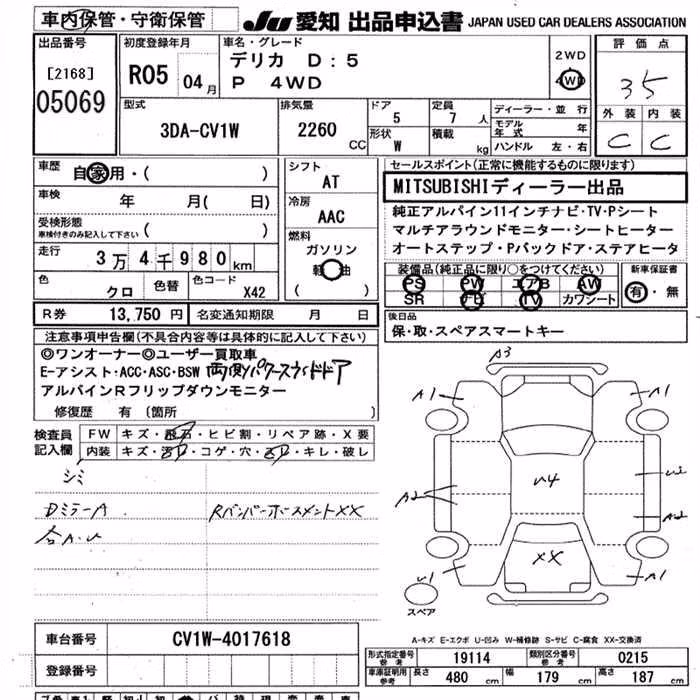 車内保管・守衛保管
JU 愛知 出品申込書 JAPAN USED CAR DEALERS ASSOCIATION
出品番号
[2168]
05069
初度登録年月
R05 04月
車名・グレード
デリカ D:5
P 4WD
2WD
4WD
評価点
3.5
外装 内装
C C
型式
3DA-CV1W
排気量
2260 CC
ドア
5
形状
W
定員
7 人
積載
kg
ディーラー・並行
モデル年式 年
ハンドル 左・右
車歴
自家用・( )
車検
年 月( 日)
受検形態
車検付きのみ記入して下さい ( )
走行
3万4千980km
色
クロ
色替
色コード
X42
シフト
AT
冷房
AAC
燃料
ガソリン
軽油
( )
セールスポイント(正常に機能するものに限ります)
MITSUBISHIディーラー出品
純正アルパイン11インチナビ・TV・Pシート
マルチアラウンドモニター・シートヒーター
オートステップ・Pバックドア・ステアヒータ
装備品(純正品に限り○をつけてください)
PS PW エアB AW
SR ナビ TV カワシート
新車保証書
有・無
R券 13,750円 名変通知期限 月 日
後日品
保・取・スペアスマートキー
注意事項申告欄(不具合内容等は具体的に記入して下さい)
◎ワンオーナー◎ユーザー買取車
E-アシスト・ACC・ASC・BSW 両側パワースライドドア
アルパインRフリップダウンモニター
修復歴 有 (箇所 )
検査員記入欄
FW キズ・飛石・ヒビ割・リペア跡・X要
内装 キズ・汚レ・コゲ・穴・スレ・キレ・破レ
シミ
DミラーA
RバンパーホースメントXX
合A・U
A3
A1
A1
A2
U4
U2
A2
XX
U1
A1
スペア
A-キズ E-エクボ U-凹み W-補修跡 S-サビ C-腐食 XX-交換済
車台番号 CV1W-4017618
登録番号
形式指定番号 参考 19114
類別区分番号 参考 0215
車庫証明用 参考 長さ 480 cm 幅 179 cm 高さ 187 cm